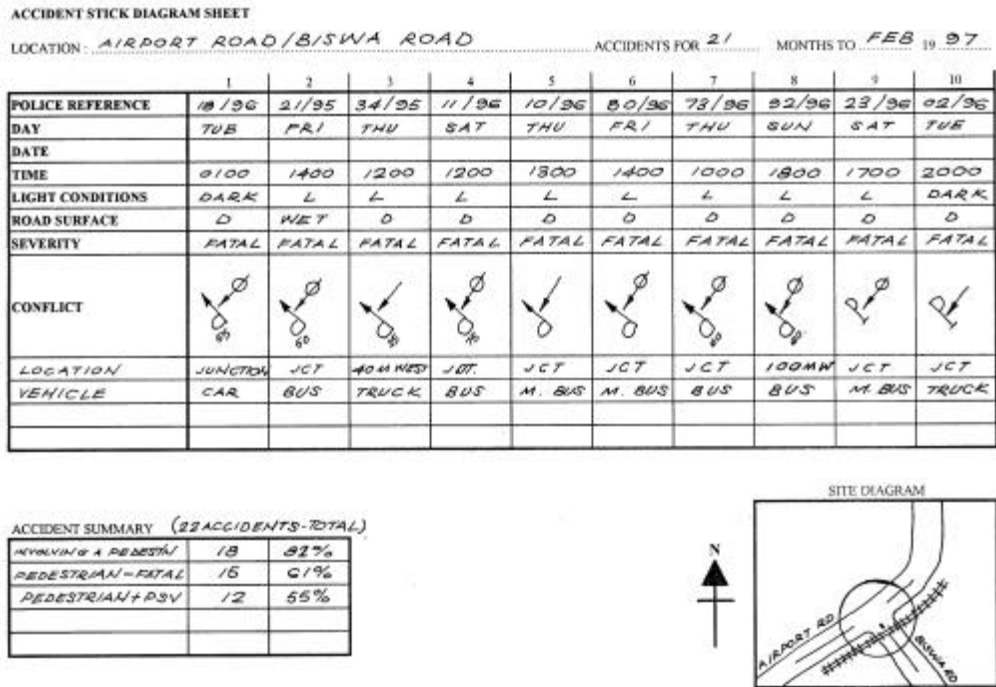 ACCIDENT STICK DIAGRAM SHEET
LOCATION : AIRPORT ROAD/BISWA ROAD ACCIDENTS FOR 21 MONTHS TO FEB 19 97
1 2 3 4 5 6 7 8 9 10
POLICE REFERENCE 18/96 21/95 34/95 11/96 10/96 80/96 73/96 92/96 23/96 02/96
DAY TUE FRI THU SAT THU FRI THU SUN SAT TUE
DATE
TIME 0100 1400 1200 1200 1300 1400 1000 1800 1700 2000
LIGHT CONDITIONS DARK L L L L L L L L DARK
ROAD SURFACE D WET D D D D D D D D
SEVERITY FATAL FATAL FATAL FATAL FATAL FATAL FATAL FATAL FATAL FATAL
CONFLICT
LOCATION JUNCTION JCT 40M WEST JCT JCT JCT 100MW JCT JCT
VEHICLE CAR BUS TRUCK BUS M. BUS M. BUS BUS BUS M. BUS TRUCK
SITE DIAGRAM
ACCIDENT SUMMARY (22 ACCIDENTS-TOTAL)
INVOLVING A PEDEST'N 18 82%
PEDESTRIAN-FATAL 15 61%
PEDESTRIAN+PSV 12 55%
N
AIRPORT RD
BISWA RD